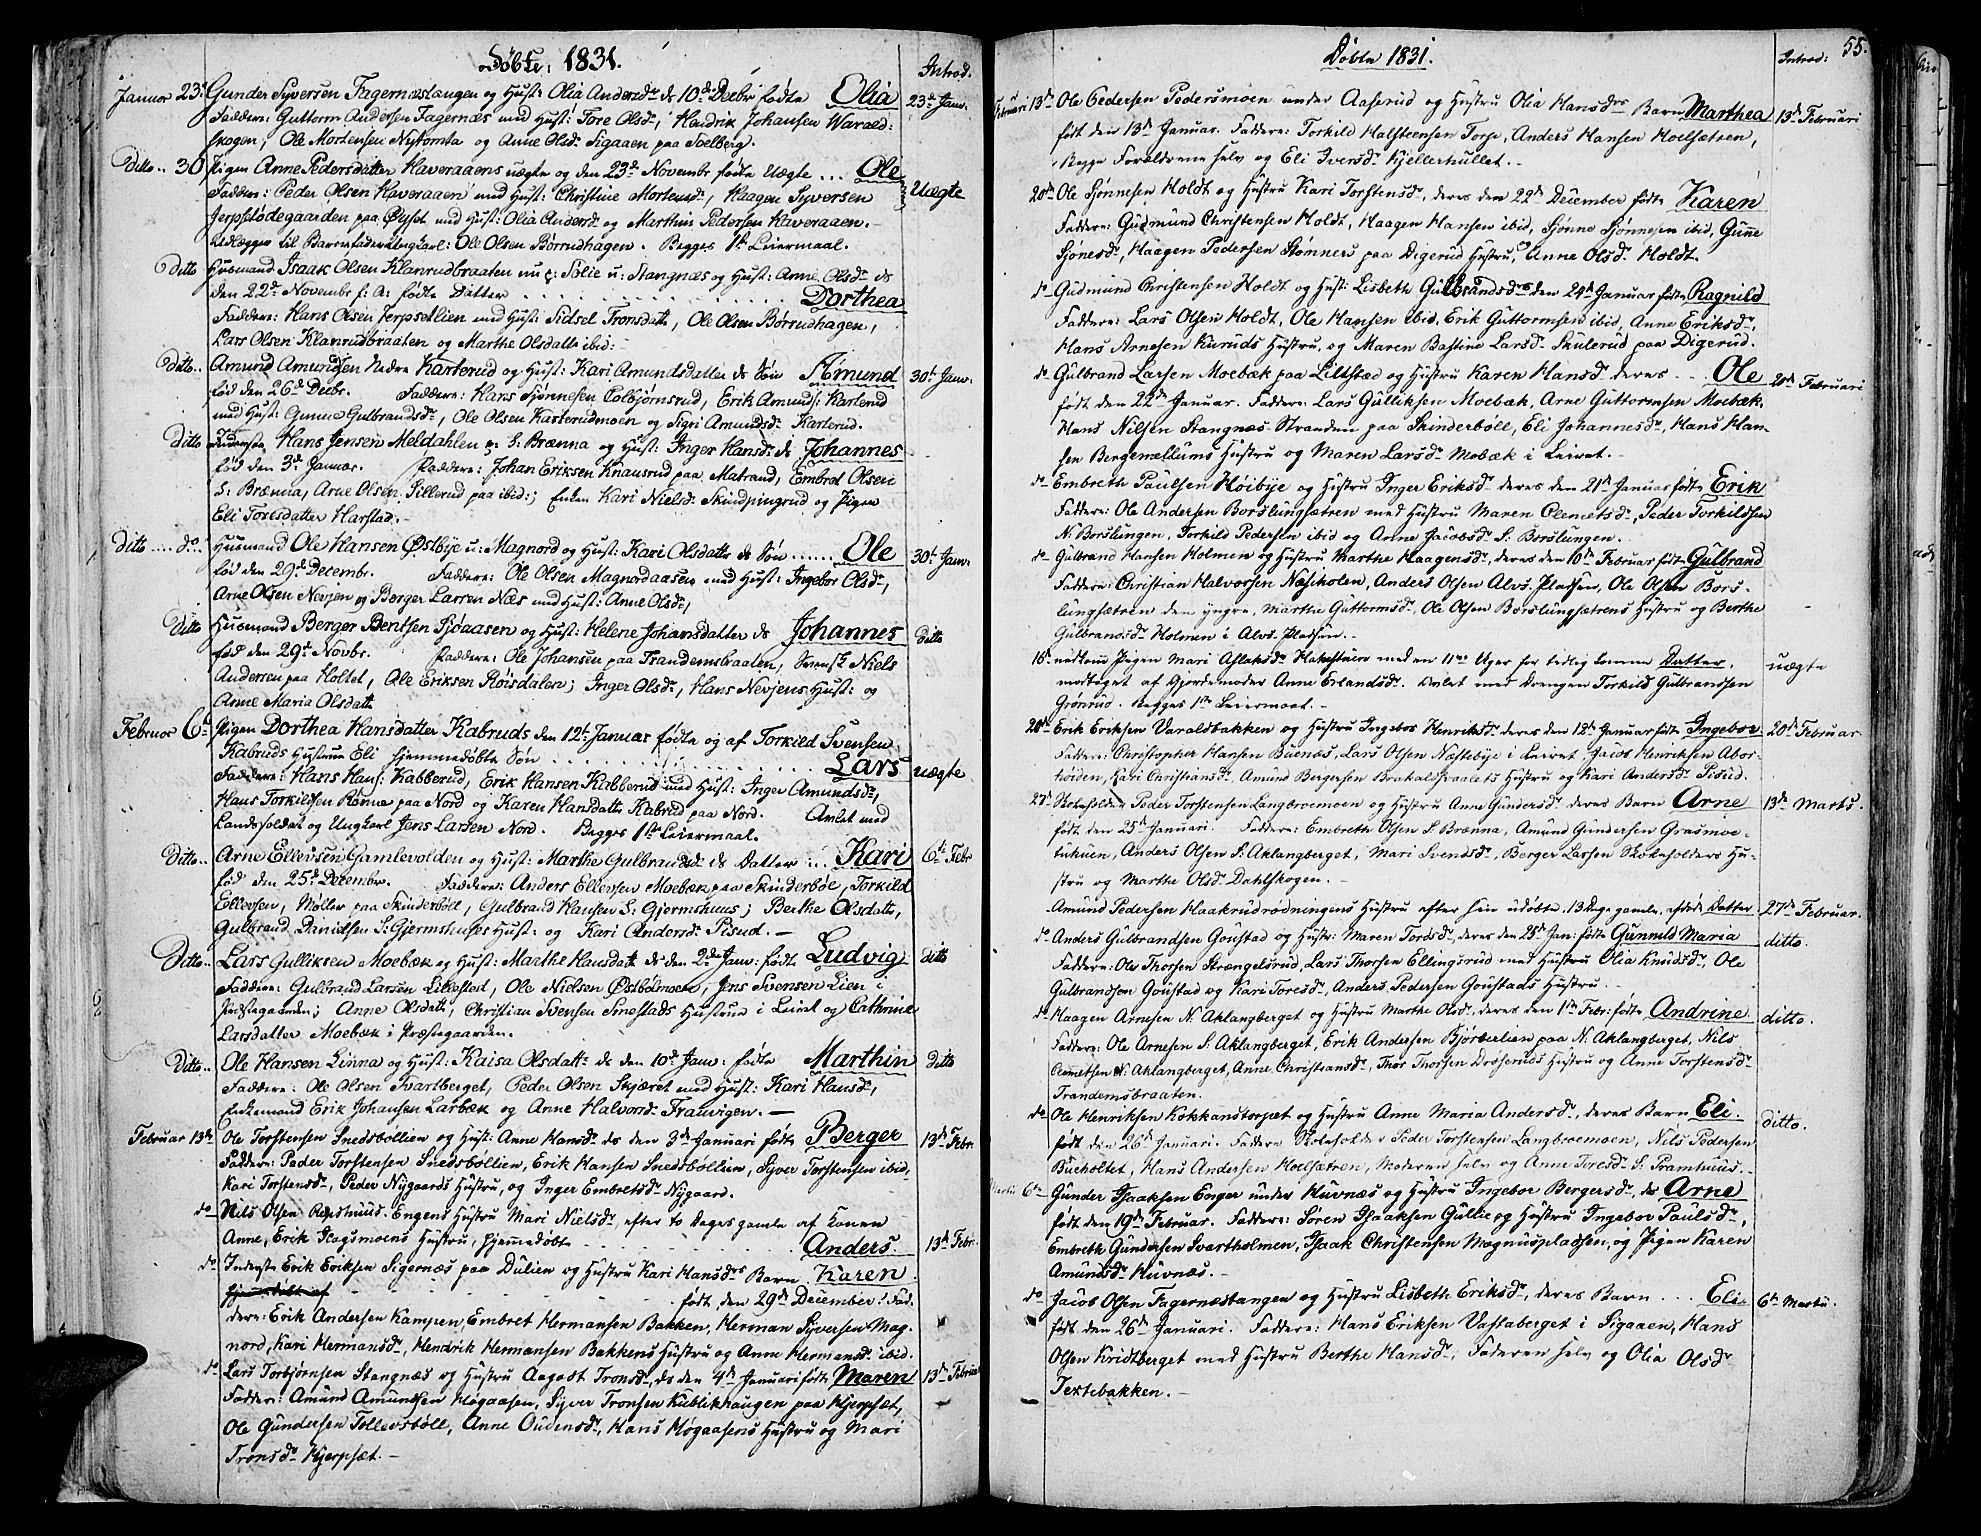 Döbte, 1831.
Introd.
Januar 23d Gunder Syversen Fagernæstangen og Hust: Olia Andersdr ds 10d Decbr födte Olia 23d Janv.
Faddere: Guttorm Andersen Fagernæs med Hust: Tore Olsdr, Hendrik Johansen Warald-
skogen, Ole Mortensen Nytomta og Anne Olsdr Sigaaen paa Soelberg.
Ditto.. 30. Pigen Anne Pedersdatter Haveraaens uægte og den 23d Novembr födte Uægte ... Ole Uægte
Faddere: Peder Olsen Haveraaen med Hust: Christine Mortensdr, Haagen Syversen
Jerpsetödegaarden paa Öyset med Hust: Olia Andersdr og Marthin Pedersen Haveraaen.
Udlægger til Barnefader Ungkarl: Ole Olsen Börrudhagen. Begges 1te Leiermaal.
Ditto Husmand Isaak Olsen Klanrudbraaten nu p: Solie u: Stangnæs og Hust: Anne Olsdr ds
den 22d Novembr f: A: födte Datter . . . . . Dorthea
Faddere: Hans Olsen Jerpsetlien med Hust: Sidsel Tronsdatter, Ole Olsen Börrudhagen,
Lars Olsen Klanrudbraaten og Marthe Olsdatter ibid:
Ditto.. Amund Amundsen Nedre Karterud og Hust: Kari Amundsdatter ds Sön Amund 30te Janv:
föd den 26d Decbr. Faddere: Hans Sjönnesen Colbjörnsrud, Erik Amunds: Karterud
med Hust: Gunne Gulbrandsdr, Ole Olsen Karterudmoen og Sigri Amundsdr Karterud.
Ditto Inderste Hans Jensen Meldahlen p: S. Brænna og Hust: Inger Hansdr ds Johannes
föd den 3d Januar. Faddere: Johan Eriksen Knausrud paa Matrand, Embret Olsen
S: Brænna, Arne Olsen Sillerud paa ibid:; Enken Kari Nielsdr Skindpungrud og Pigen
Eli Toresdatter Harstad.
Ditto .... do.. Husmand Ole Hansen Östbye u: Magnord og Hust: Kari Olsdatter ds Sön ...... Ole 30te Janv:
föd den 29d Decembr. Faddere: Ole Olsen Magnordaasen med Hust: Ingebor Olsdr,
Arne Olsen Nevjen og Berger Larsen Næs med Hust: Anne Olsdr,
Ditto Husmand Berger Bentsen Sjöaasen og Hust: Helene Johansdatter ds Johannes ditto
föd den 29t Novbr. Faddere: Ole Johansen paa Trandemsbraaten, Svensk Niels
Andersen paa Holtet, Ole Eriksen Röisdalen; Inger Olsdr, Hans Nevjens Hust: og
Anne Maria Olsdatt
Februar 6d Pigen Dorthea Hansdatter Kabruds den 12t Januar födte og af Torkild Svensen
Kabruds Hustrue Eli hjemmedöbte Sön . . . . . Lars uægte
Faddere: Hans Hans: Kabberud, Erik Hansen Kabberud med Hust: Inger Amundsdr,
Hans Torkildsen Rönne paa Nord og Karen Hansdatter Kabrud paa Nord. Avlet med
Landsoldat og Ungkarl Jens Larsen Nord. Begges 1te Leiermaal.
Ditto.. Arne Ellevsen Gamlevolden og Hust: Marthe Gulbrandsdr ds Datter ... Kari 6te Febr
föd den 25d Decembr. Faddere: Anders Ellevsen Moebæk paa Skinderböe, Torkild
Ellevsen, Möller paa Skinderböll, Gulbrand Hansen S: Gjermshuus; Berthe Olsdatter,
Gulbrand Davidsen S: Gjermshuses Hust: og Kari Andersdr Pisud.
Ditto.. Lars Gulliksen Moebæk og Hust: Marthe Hansdatt ds den 2d Janv: födt Ludvig ditto
Faddere: Gulbrand Larsen Lillestad, Ole Nielsen Östbömoen, Jens Svensen Lien i
Præstegaarden; Anne Olsdatt, Christian Svensen Smestads Hustrue i Leiret og Cathrine
Larsdatter Moebæk i Præstegaarden.
Ditto.. Ole Hansen Linna og Hust: Kaisa Olsdattr ds den 10d Janv: födte Marthin Ditto
Faddere: Ole Olsen Svartberget, Peder Olsen Skjæret med Hust: Kari Hansdr,
Enkemand Erik Johansen Larbæk og Anne Halvorsdr Frauvigen.
Februar 13de Ole Torstensen Snedsböllien og Hust: Anne Hansdr ds den 3d Januari födte Berger 13d Febr.
Faddere: Peder Torstensen Snedsböllien, Erik Hansen Snedsböllien, Syver Torstensen ibid,
Kari Torstensdr, Peder Nygaards Hüstrü, og Inger Embretsdr Nygaard.
do Nils Olsen Engens Hüstrü Mari Nielsdr, efter to Dages gamle af Konen
Anne, Erik Skagsmoens Hüstrü, hjemmedöbte . . . . Anders 13d Febr.
do Inderste Erik Eriksen Sigernæs paa Dülien og Hüstrü Kari Hansdrs Barn Karen
födt den 29de December. Fad-
dere: Erik Andersen Kampen Embret Hermansen Bakken, Herman Syversen Mag-
nord, Kari Hermansdr, Hendrik Hermansen Bakkens Hüstrü og Anne Hermansdr ibid.
do Lars Torbjörnsen Stangnæs og Hüstrü Aagodt Tronsdr, ds den 4de Januari födte Maren 13de Februar
Faddere: Amünd Amündsen Högaasen, Syver Tronsen Kublikhaugen paa Hjerpsæt,
Ole Gündersen Tollevsböll, Anne Oüdensdr, Hans Högaasens Hüstrü og Mari
Tronsdr Hjerpsæt.
Döbte 1831.
Introd: 55.
Februari 13de Ole Pedersen Pedersmoen under Aaserud og Hustru Olia Hansdrs Barn Marthea 13de Februari
födt den 13de Januar. Faddere: Torkild Halsteensen Torp, Anders Hansen Moelsætren,
Begge Forældrene selv og Eli Iversdr Kjellerhullet.
20de Ole Sjönnesen Holdt og Hüstru Kari Torstensdr, deres den 22de December födte Karen
Faddere: Güdmünd Christensen Holdt, Haagen Hansen ibid, Sjönne Sjönnesen ibid, Günne
Sjönesdr, Haagen Pedersen Stömner paa Digerud Hüstrü, Anne Olsdr Holdt.
do Güdmund Christensen Holdt og Hust: Lisbeth Gülbrandsdrs den 24de Januar födte Ragnild
Faddere: Lars Olsen Holdt, Ole Hansen ibid, Erik Guttormsen ibid, Anne Eriksdr,
Hans Arnesen Kuruds Hüstrü, og Maren Bastine Larsdr Skulerud paa Digerud.
do Gülbrand Larsen Moebæk paa Lillestad og Hüstrü Karen Hansdr deres . . Ole 20de Februari
födt den 22de Januar. Faddere: Lars Gülliksen Moebæk, Arne Güttormsen Moebæk,
Hans Nilsen Stangnæs Stranden paa Skinderböll, Eli Johannesdr, Hans Han-
sen Bergemellums Hüstrü og Maren Larsdr Mobæk i Leiret.
do Embreth Paülsen Höibye og Hüstrü Inger Eriksdr deres den 21de Januar födte Erik
Faddere: Ole Andersen Borslungsætren med Hüstrü Maren Clemetsdr, Peder Torkildsen
N: Borslungen, Torkild Pedersen ibid og Anne Jacobsdr S. Borslungen.
do Gülbrand Hansen Holmen og Hüstrü Marthe Haagensdr, deres den 10de Februar födte Gülbrand
Faddere: Christian Halvorsen Næsholen, Anders Olsen Alvs Pladsen, Ole Olsen Bors-
lungsætren den yngre, Marthe Güttormsdr, Ole Olsen Borslungsætrens Hüstrü og Berthe
Gülbrandsdr Holmen i Alvs Pladsen.
16. nedkom Pigen Mari Aslaksdr Hakestuen med en 11ve Uger for tidlig kommen Datter, uægte
modtaget af Gjordemoder Anne Erlandsdr. Avlet med Drengen Torkild Gülbrandsen
Grönrud. Begges 1te Leiermaal.
20de Erik Eriksen Varaldsbakken og Hüstrü Ingebor Henriksdr deres den 18de Januar födte Ingebor 20de Februar.
Faddere: Christopher Hansen Büenæs, Lars Olsen Næstebye i Leiret Jacob Henriksen Abor-
höiden, Kari Christiansdr, Amünd Bergersen Hüstrü og Kari Andersdr Pisüd.
27de Skoleholder Peder Torstensen Langbroemoen og Hüstrü Anne Gündersdr, deres Barn Arne 13de Martü.
födt den 25de Januari. Faddere: Embreth Olsen S. Brænna, Amünd Gündersen Grasmoe-
tuhuen, Anders Olsen S: Aklangberget, Mari Svendsdr, Berger Larsen Skoleholders Hu-
strü og Marthe Olsdr Dahlskogen.
Amünd Pedersen Haakrudrödningens Hüstrü efter sin udöbte, 13 Dage gamle, afdöde Datter 27de Februar.
do Anders Gülbrandsen Goustad og Hüstrü: Maren Tordsdr, deres den 25de Jan: födte Günnild Maria ditto.
Faddere: Ole Thorsen Strængelsrud, Lars Thorsen Ellingsrud med Hüstrü Olia Knüdsdr, Ole
Gülbrandsen Goüstad og Kari Toresdr, Anders Pedersen Goüstads Hüstrü.
do Haagen Arnesen N. Aklangberget og Hüstrü Marthe Olsdr, deres den 1te Febr: födte Andrine ditto.
Faddere: Ole Arnesen S: Aklangberget, Erik Andersen Björberlien paa N: Aklangberget, Nils
Clemetsen N: Aklangberget, Anne Christiansdr, Thor Thorsen Hüstrü og Anne Torstensdr
Trandemsbraaten.
do Ole Henriksen Kokkanstorpet og Hüstrü Anne Maria Andersdr, deres Barn Eli. ditto.
födt den 26de Januari. Faddere Skoleholder Peder Torstensen Langbroemoen, Nils Pedersen
Bücholtet, Hans Andersen Moelsætren, Moderen selv og Anne Toresdr S. Pramhuus.
Martü 6te Günder Isaaksen Enger under Hüvnæs og Hüstrü Ingebor Bergersdr, ds Arne
födt den 19de Februar. Faddere: Sören Isaaksen Güllie og Hüstrü Ingebor Paulsdr,
Embreth Gündersen Svartholmen, Isaak Christensen Magnuspladsen, og Pigen Karen
Amündsdr Hüvnæs.
do Jacob Olsen Fagernæstangen og Hüstrü Lisbeth Eriksdr, deres Barn ... Eli. 6te Martü.
födt den 26de Januari. Faddere: Hans Eriksen Vastaberget i Sigaaen, Hans
Olsen Kridtberget med Hüstrü Berthe Hansdr, Faderen selv og Olia Olsdr
Textebakken.